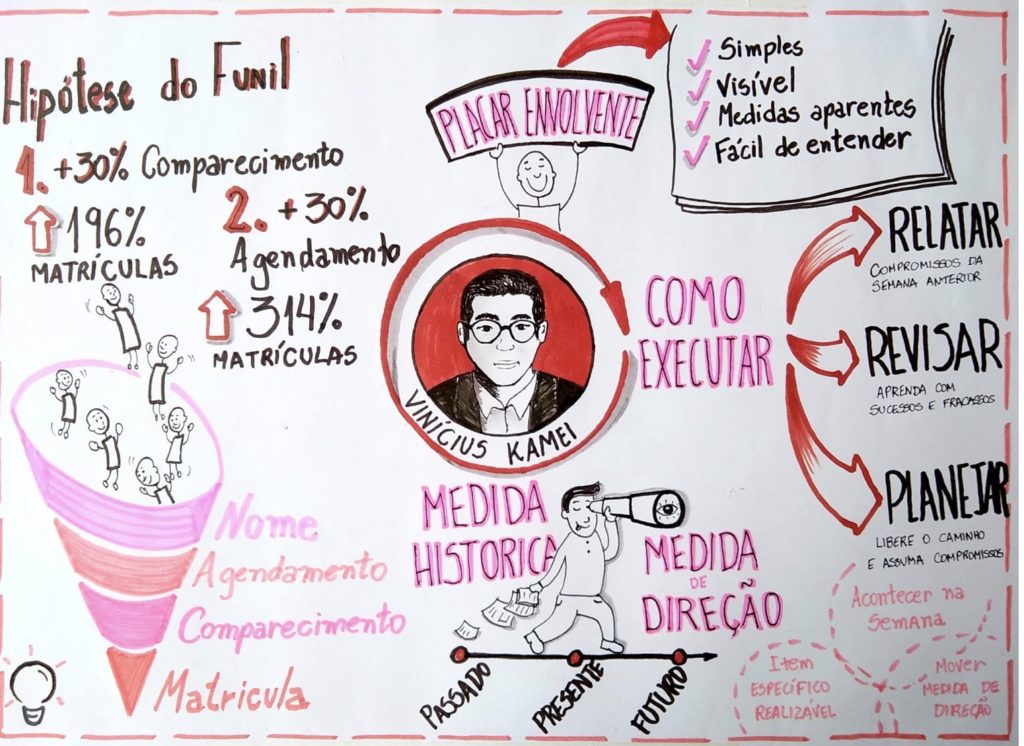 Hipótese do Funil
1. +30% Comparecimento
196%
MATRÍCULAS
2. +30%
Agendamento
314%
MATRÍCULAS
Nome
Agendamento
Comparecimento
Matricula
PLACAR ENVOLVENTE
Simples
Visível
Medidas aparentes
Fácil de entender
VINÍCIUS KAMEI
COMO
EXECUTAR
RELATAR
COMPROMISSOS DA
SEMANA ANTERIOR
REVISAR
APRENDA COM
SUCESSOS E FRACASSOS
PLANEJAR
LIBERE O CAMINHO
E ASSUMA COMPROMISSOS
MEDIDA
HISTORICA
MEDIDA
DE
DIREÇÃO
PASSADO
PRESENTE
FUTURO
Acontecer na
Semana
Item
ESPECÍFICO
REALIZÁVEL
Mover
MEDIDA DE
DIREÇÃO